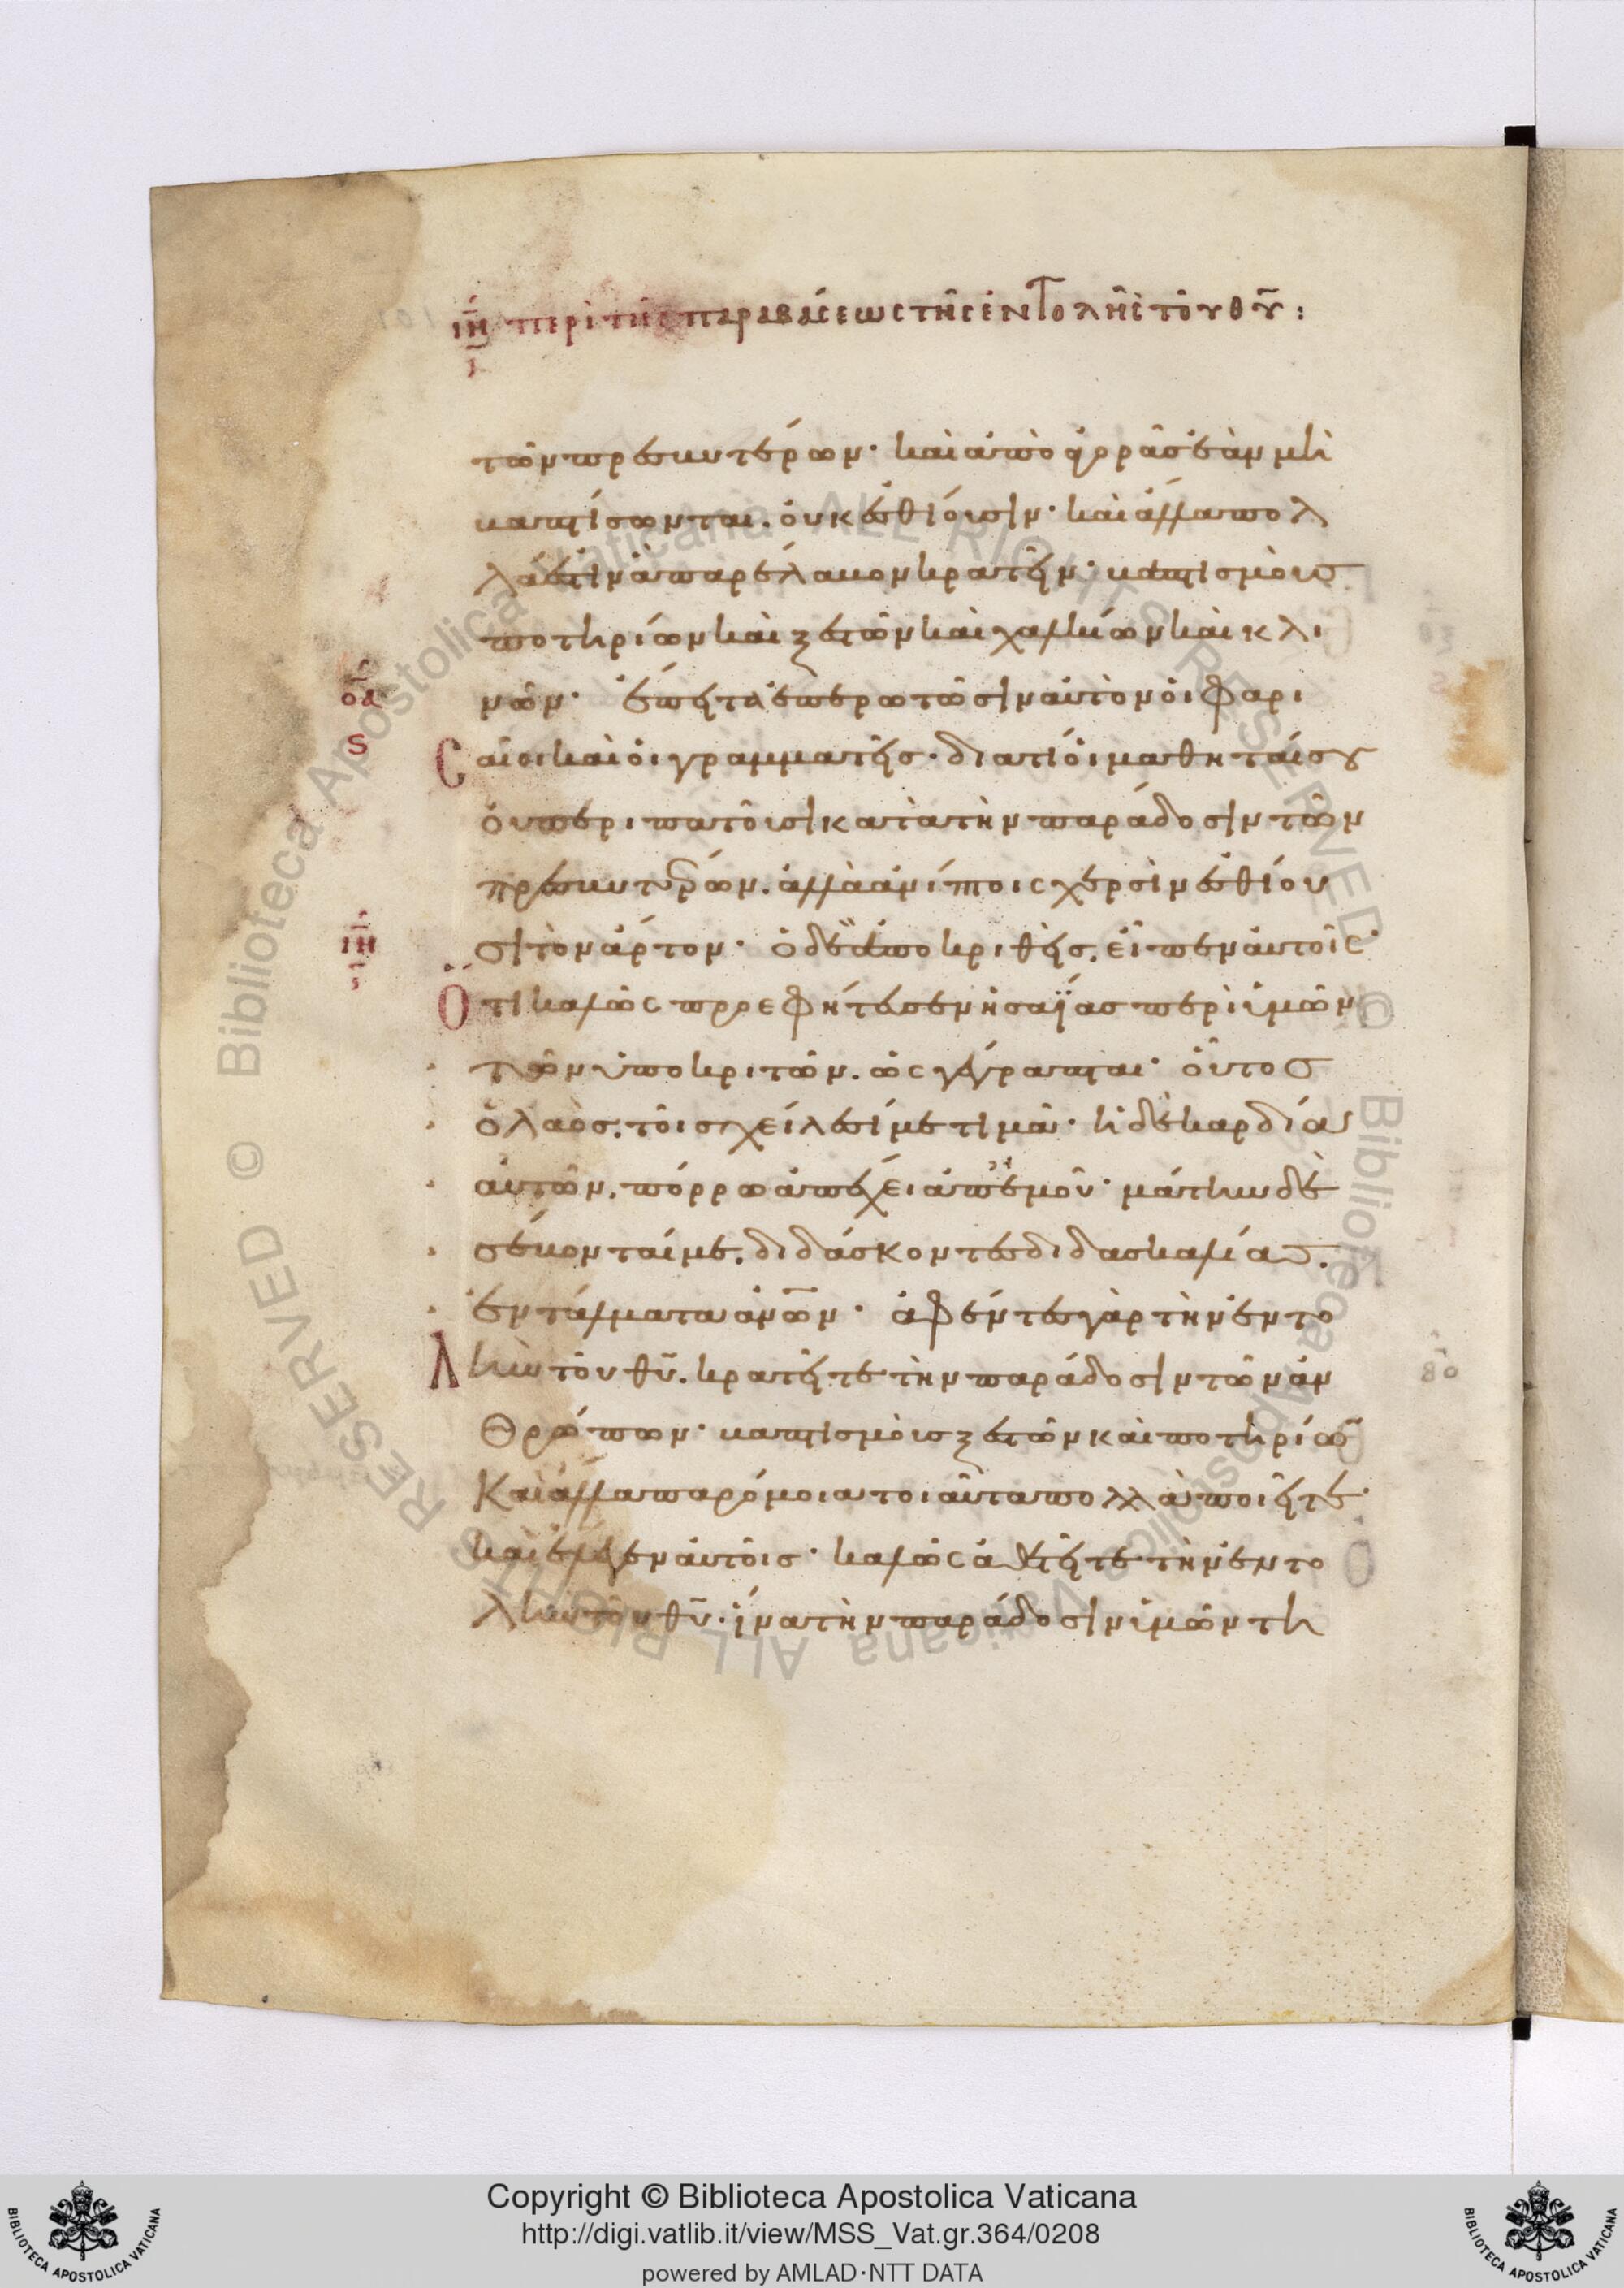 ιη περὶ τῆς παραβάσεως τῆς ἐντολῆς τοῦ θυ:
τῶν πρεσβυτέρων· καὶ ἀπὸ ἀγορᾶς ἐὰν μὴ
βαπτίσωνται. οὐκ ἐσθίουσιν· καὶ ἄλλα πολ
λά ἐστιν ἃ παρέλαβον κρατεῖν· βαπτισμοὺς
ποτηρίων καὶ ξεστῶν καὶ χαλκίων καὶ κλι
νῶν· ἔπειτα ἐπερωτῶσιν αὐτὸν οἱ φαρι
οα
ς
Σαῖοι καὶ οἱ γραμματεῖς· διατί οἱ μαθηταί σου
οὐ περιπατοῦσι κατὰ τὴν παράδοσιν τῶν
πρεσβυτέρων. ἀλλὰ ἀνίπτοις χερσὶν ἐσθίου
σι τὸν ἄρτον· ὁ δὲ ἀποκριθεὶς. εἶπεν αὐτοῖς·
ιη
Ὅτι καλῶς προεφήτευσεν ἠσαΐας περὶ ὑμῶν
τῶν ὑποκριτῶν. ὡς γέγραπται· οὗτος
ὁ λαὸς. τοῖς χείλεσί με τιμᾶ· ἡ δὲ καρδία
αὐτῶν. πόρρω ἀπέχει ἀπ' ἐμοῦ· μάτην δὲ
σέβονταί με. διδάσκοντες διδασκαλίας.
ἐντάλματα ἀνων· ἀφέντες γὰρ τὴν ἐντο
Λὴν τοῦ θυ. κρατεῖτε τὴν παράδοσιν τῶν ἀν
Θρώπων· βαπτισμοὺς ξεστῶν καὶ ποτηρίων
Καὶ ἄλλα παρόμοια τοιαῦτα πολλὰ ποιεῖτε·
καὶ ἔλεγεν αὐτοῖς· καλῶς ἀθετεῖτε τὴν ἐντο
λὴν τοῦ θυ. ἵνα τὴν παράδοσιν ὑμῶν τη
Copyright © Biblioteca Apostolica Vaticana
http://digi.vatlib.it/view/MSS_Vat.gr.364/0208
powered by AMLAD·NTT DATA
BIBLIOTECA APOSTOLICA VATICANA
BIBLIOTECA APOSTOLICA VATICANA